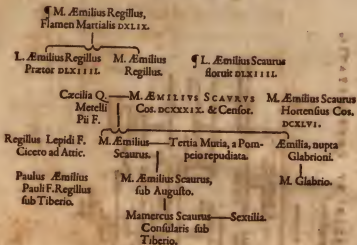 ¶ M. Æmilius Regillus,
Flamen Martialis DXLIX.
L. Æmilius Regillus
Prætor DLXIIII.
M. Æmilius
Regillus.
¶ L. Æmilius Scaurus
floruit DLXIIII.
Cæcilia Q.
Metelli
Pii F.
M. ÆMILIUS SCAVRVS
Cos. DCXXXIX. & Censor.
M. Æmilius Scaurus
Hortensius Cos.
DCXLVI.
Regillus Lepidi F.
Cicero ad Attic.
M. Æmilius
Scaurus.
Tertia Mutia, a Pom-
peio repudiata.
Æmilia, nupta
Glabrioni.
Paulus Æmilius
Pauli F. Regillus
sub Tiberio.
M. Æmilius Scaurus,
sub Augusto.
M. Glabrio.
Mamercus Scaurus
Consularis sub
Tiberio.
Sextilia.